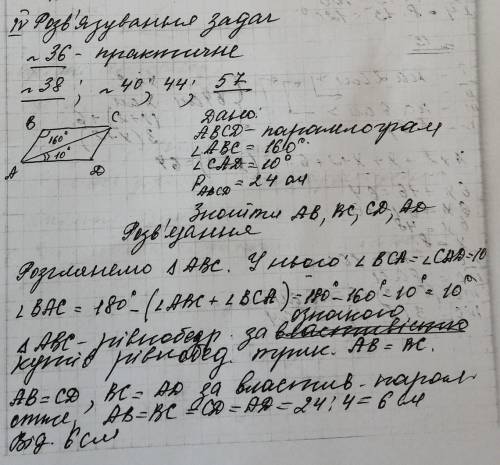 IV Розв'язування задач
№36 - практичне
№38; №40, 44; 57
B C
160°
10°
A D
Дано:
ABCD - паралелограм
∠ABC = 160°
∠CAD = 10°
P ABCD = 24 см
Знайти AB, BC, CD, AD
Розв'язання
Розглянемо △ABC. У нього: ∠BCA = ∠CAD = 10
∠BAC = 180° - (∠ABC + ∠BCA) = 180° - 160° - 10° = 10°
ознакою
△ABC - рівнобедр. за властивістю
кутів рівнобед. трик. AB = BC.
AB = CD, BC = AD за властив. парал.
AB = BC = CD = AD = 24 : 4 = 6 см
Від. 6 см